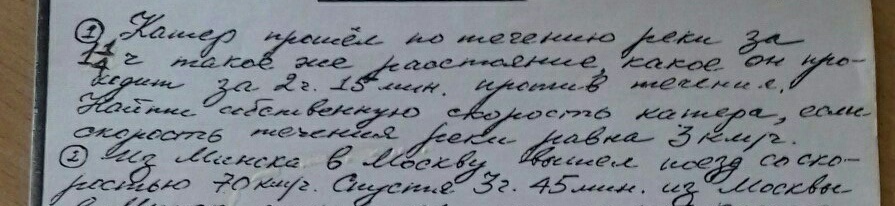 ① Катер прошёл по течению реки за
1 1/4 ч такое же расстояние, какое он про-
ходит за 2 г. 15 мин. против течения.
Найти собственную скорость катера, если
скорость течения реки равна 3 км/г.
② Из Минска в Москву вышел поезд со ско-
ростью 70 км/г. Спустя 3 г. 45 мин. из Москвы